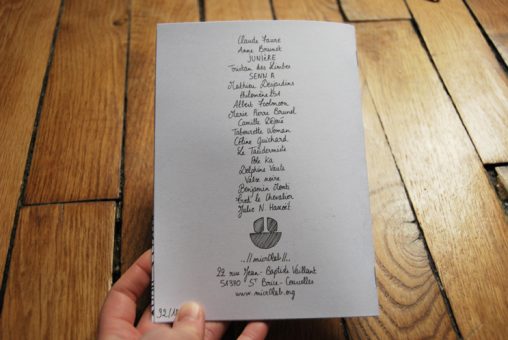 Claude Faure
Anne Brunet
JUNIÈRE
Tristan des Limbes
SENN A
Mathieu Desjardins
Philomène
Albert Foolmoon
Marie Pierre Brunel
Camille
Tabourette Woman
Céline Guichard
Le Taxidermiste
Pole Ka
Delphine Vaute
Valse noire
Benjamin Monti
Fred le Chevalier
Julie N Hascoët
..//mior0lab//..
22 rue Jean-Baptiste Vaillant
51370 St Brice-Courcelles
92/1